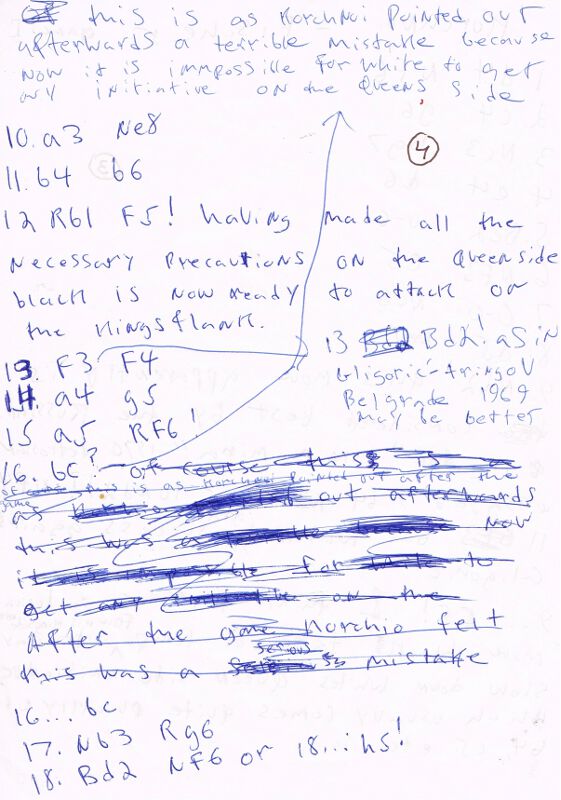 this is as Korchnoi pointed out
afterwards a terrible mistake because
now it is immpossille for white to get
any initiative on the Queens side
4
10. a3 Ne8
11. b4 b6
12 Rb1 F5! having made all the
necessary precautions on the Queenside
black is now ready to attack on
the Kingsflank.
13. F3 F4
14. a4 g5
15 a5 RF6!
13 Bd2! as in
Gligoric-tringoV
Belgrade 1964
may be better
16. bc? of course this is a
this is as Korchnoi pointed out after the
game
as out afterwards
this was a now
it is impossible for to
get any on the
After the game Korchio felt
serious
this was a mistake
16... bc
17. Nb3 Rg6
18. Bd2 NF6 or 18...h5!